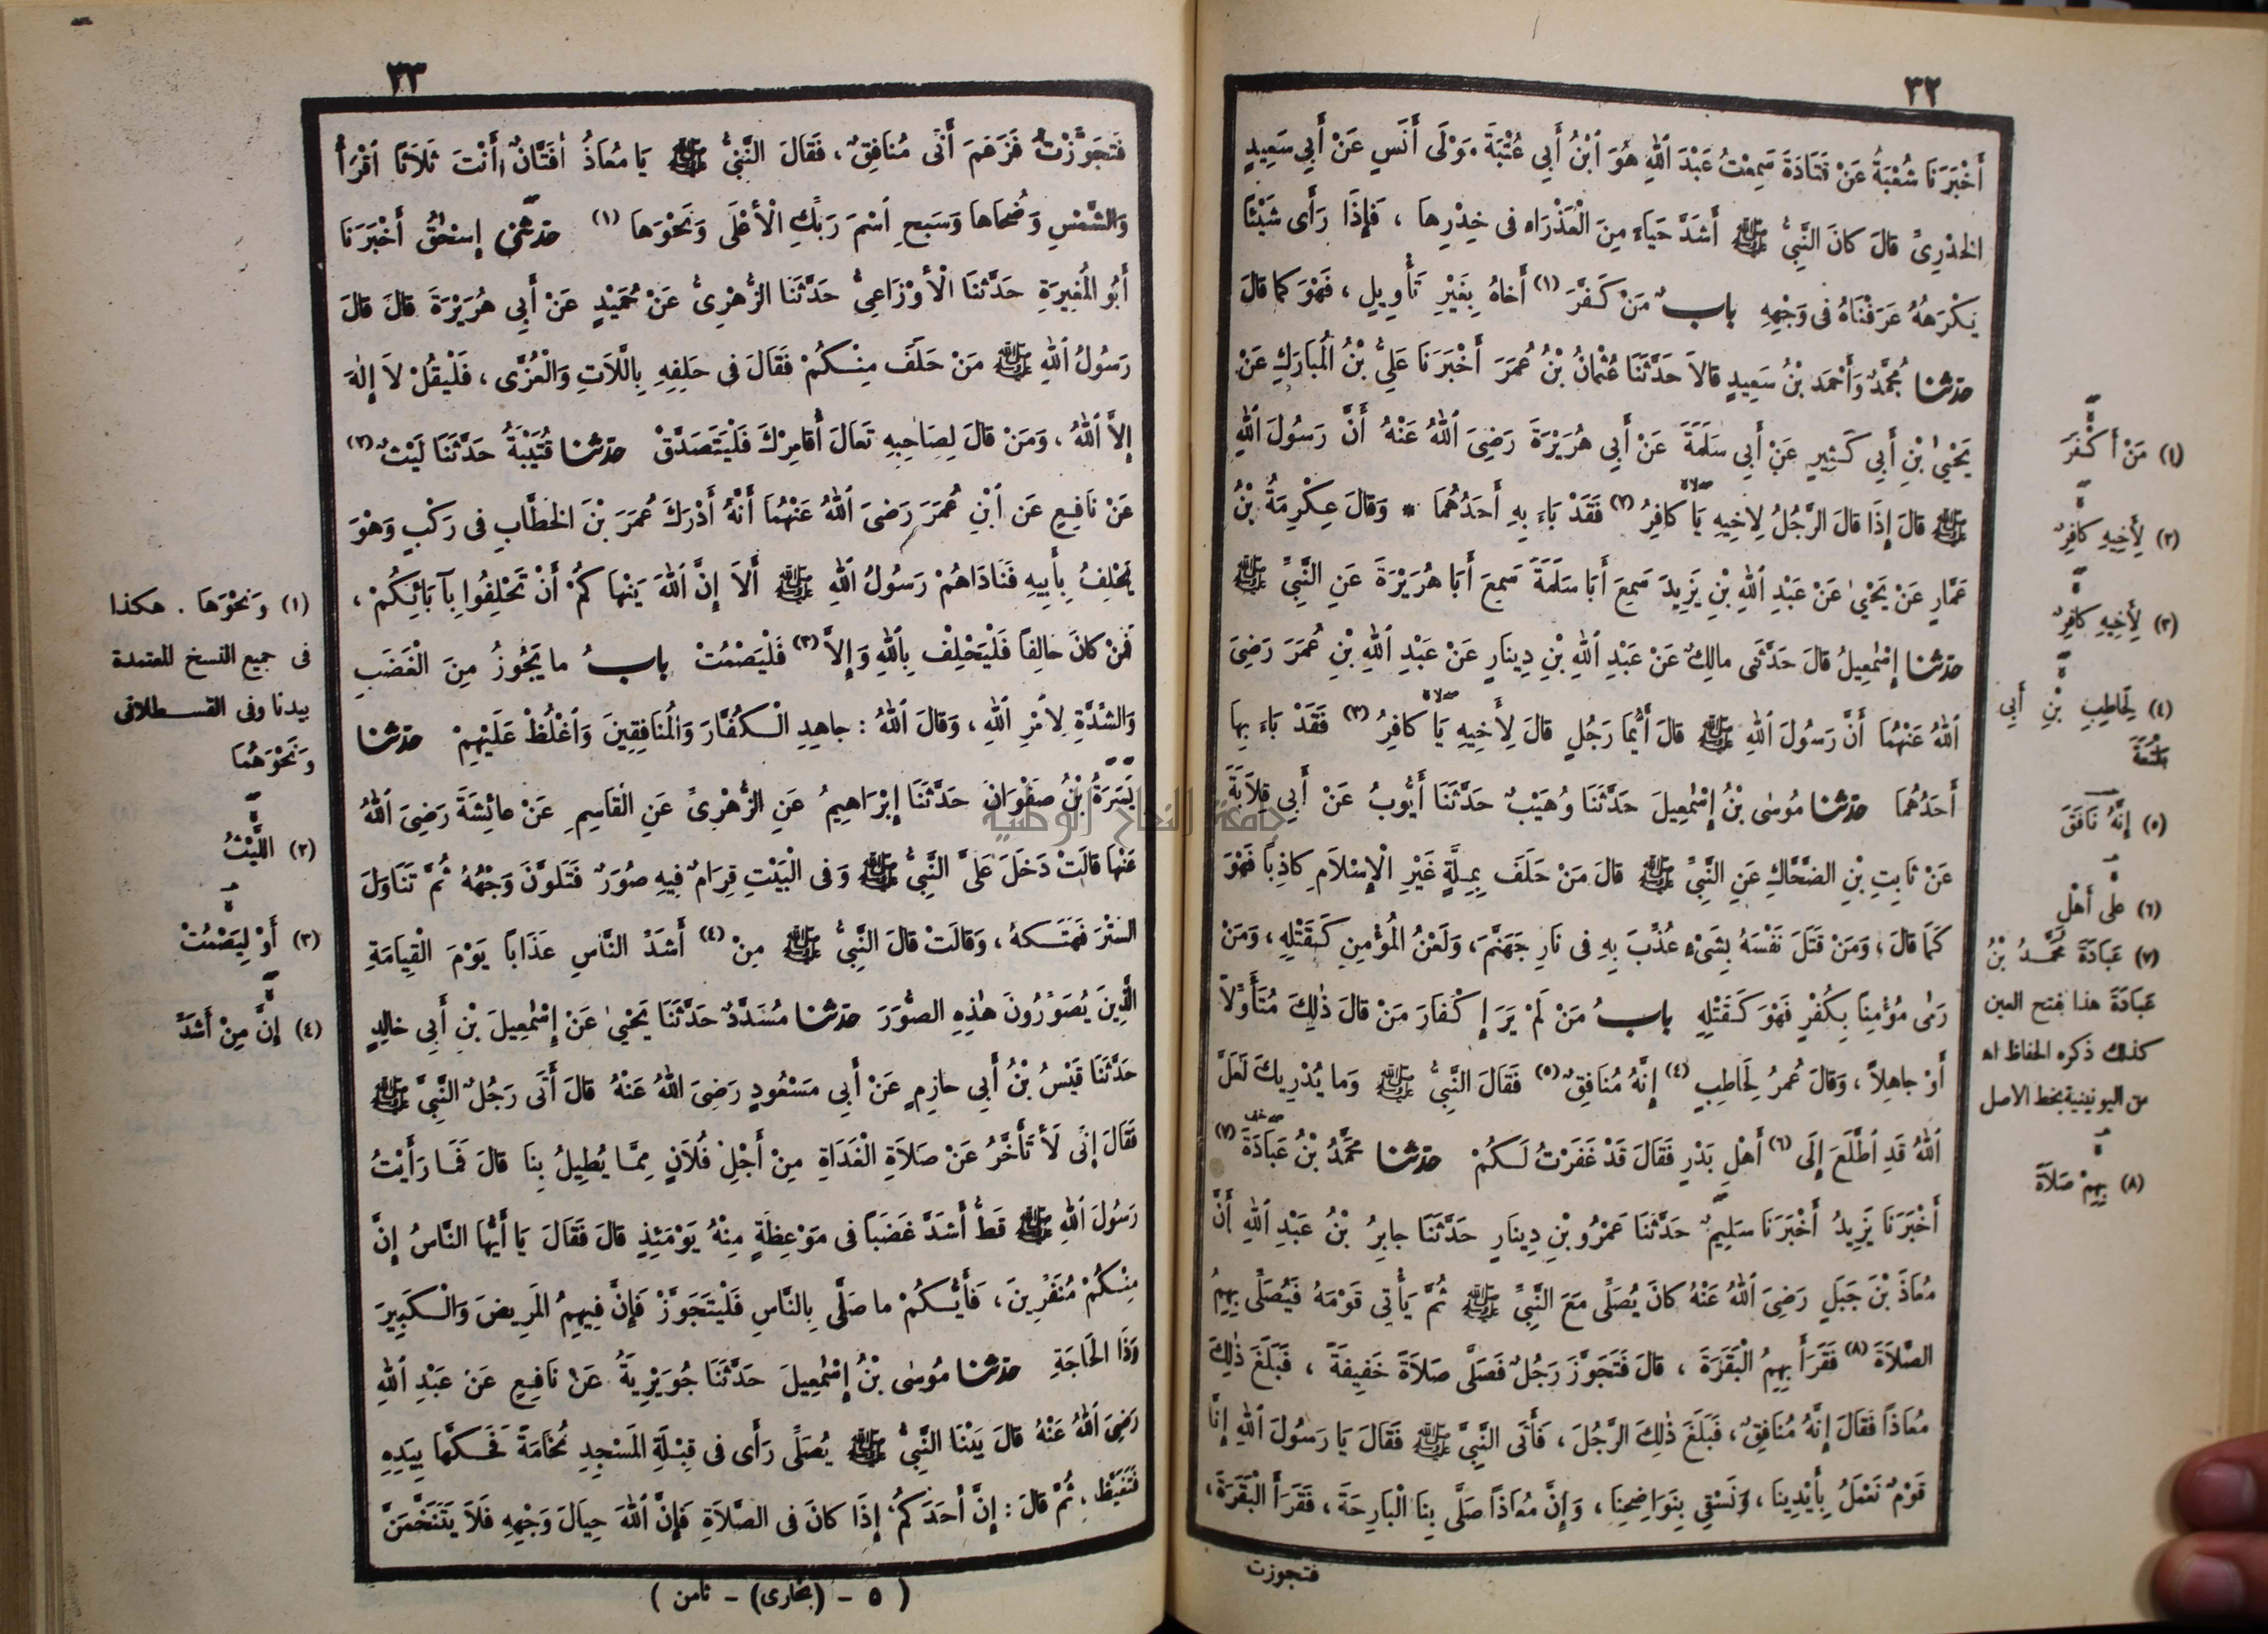 ٣٢
أَخْبَرَنَا شُعْبَةُ عَنْ قَتَادَةَ سَمِعْتُ عَبْدَ اللهِ هُوَ ابْنُ أَبِي عُتْبَةَ مَوْلَى أَنَسٍ عَنْ أَبِي سَعِيدٍ
الْخُدْرِيِّ قالَ كانَ النَّبِيُّ ﷺ أَشَدَّ حَيَاءً مِنَ الْعَذْرَاءِ فِى خِدْرِها ، فَإِذَا رَأَى شَيْئًا
يَكْرَهُهُ عَرَفْنَاهُ فِى وَجْهِهِ باب مَنْ كَفَّرَ (١) أَخاهُ بِغَيْرِ تَأْوِيلٍ ، فَهْوَ كما قالَ
حدثنا مُحَمَّدٌ وَأَحْمَدُ بْنُ سَعِيدٍ قالاَ حَدَّثَنَا عُثْمانُ بْنُ عُمَرَ أَخْبَرَنَا عَلِيُّ بْنُ الْمُبَارَكِ عَنْ
يَحْيىٰ بْنِ أَبِي كَثِيرٍ عَنْ أَبِي سَلَمَةَ عَنْ أَبِي هُرَيْرَةَ رَضِيَ اللهُ عَنْهُ أَنَّ رَسُولَ اللهِ
ﷺ قالَ إِذَا قالَ الرَّجُلُ لِأَخِيهِ يَا كافِرُ (٢) فَقَدْ بَاءَ بِهِ أَحَدُهُمَا * وَقالَ عِكْرِمَةُ بْنُ
عَمَّارٍ عَنْ يَحْيىٰ عَنْ عَبْدِ اللهِ بْنِ يَزِيدَ سَمِعَ أَبَا سَلَمَةَ سَمِعَ أَبَا هُرَيْرَةَ عَنِ النَّبِيِّ ﷺ
حدثنا إِسْمٰعِيلُ قالَ حَدَّثَنِى مالِكٌ عَنْ عَبْدِ اللهِ بْنِ دِينَارٍ عَنْ عَبْدِ اللهِ بْنِ عُمَرَ رَضِيَ
اللهُ عَنْهُمَا أَنَّ رَسُولَ اللهِ ﷺ قالَ أَيُّمَا رَجُلٍ قالَ لِأَخِيهِ يَا كافِرُ (٣) فَقَدْ بَاءَ بِها
أَحَدُهُمَا حدثنا مُوسٰى بْنُ إِسْمٰعِيلَ حَدَّثَنَا وُهَيْبٌ حَدَّثَنَا أَيُّوبُ عَنْ أَبِي قِلاَبَةَ
عَنْ ثَابِتِ بْنِ الضَّحَّاكِ عَنِ النَّبِيِّ ﷺ قالَ مَنْ حَلَفَ بِمِلَّةٍ غَيْرِ الْإِسْلاَمِ كاذِبًا فَهْوَ
كَمَا قالَ ، وَمَنْ قَتَلَ نَفْسَهُ بِشَيْءٍ عُذِّبَ بِهِ فِى نَارِ جَهَنَّمَ ، وَلَعْنُ الْمُؤْمِنِ كَقَتْلِهِ ، وَمَنْ
رَمٰى مُؤْمِنًا بِكُفْرٍ فَهْوَ كَقَتْلِهِ باب مَنْ لَمْ يَرَ إِكْفَارَ مَنْ قالَ ذٰلِكَ مُتَأَوِّلاً
أَوْ جاهِلاً ، وَقالَ عُمرُ لِحَاطِبٍ (٤) إِنَّهُ مُنَافِقٌ (٥) فَقَالَ النَّبِيُّ ﷺ وَما يُدْرِيكَ لَعَلَّ
اللهُ قَدِ اطَّلَعَ إِلَى (٦) أَهْلِ بَدْرٍ فَقَالَ قَدْ غَفَرْتُ لَكُمْ حدثنا مُحَمَّدُ بْنُ عَبَادَةَ (٧)
أَخْبَرَنَا يَزِيدُ أَخْبَرَنَا سَلِيمٌ حَدَّثَنَا عَمْرُو بْنُ دِينَارٍ حَدَّثَنَا جابِرُ بْنُ عَبْدِ اللهِ أَنَّ
مُعَاذَ بْنَ جَبَلٍ رَضِيَ اللهُ عَنْهُ كانَ يُصَلِّى مَعَ النَّبِيِّ ﷺ ثُمَّ يَأْتِى قَوْمَهُ فَيُصَلِّى بِهِمُ
الصَّلاَةَ (٨) فَقَرَأَ بِهِمُ الْبَقَرَةَ ، قالَ فَتَجَوَّزَ رَجُلٌ فَصَلَّى صَلاَةً خَفِيفَةً ، فَبَلَغَ ذٰلِكَ
مُعَاذًا فَقَالَ إِنَّهُ مُنَافِقٌ ، فَبَلَغَ ذٰلِكَ الرَّجُلَ ، فَأَتَى النَّبِيَّ ﷺ فَقَالَ يَا رَسُولَ اللهِ إِنَّا
قَوْمٌ نَعْمَلُ بِأَيْدِينَا ، وَنَسْقِى بِنَوَاضِحِنَا ، وَإِنَّ مُعَاذًا صَلَّى بِنَا الْبَارِحَةَ ، فَقَرَأَ الْبَقَرَةَ ،
فتجوزت
(١) مَنْ أَكْفَرَ
(٢) لِأَخِيهِ كافِرٌ
(٣) لِأَخِيهِ كافِرٌ
(٤) لِحَاطِبِ بْنِ أَبِي
بَلْتَعَةَ
(٥) إِنَّهُ نَافَقَ
(٦) عَلَى أَهْلِ
(٧) عَبَادَةَ مُحَمَّدُ بْنُ
عَبَادَةَ هذا بفتح العين
كذلك ذكره الحفاظ اه
من اليونينية بخط الاصل
(٨) بِهِمْ صَلاَةً
٣٣
فَتَجَوَّزْتُ فَزَعَمَ أَنِّى مُنَافِقٌ ، فَقَالَ النَّبِيُّ ﷺ يَا مُعَاذُ أَفَتَّانٌ أَنْتَ ثَلاَثًا اقْرَأْ
وَالشَّمْسِ وَضُحَاها وَسَبِّحِ اسْمَ رَبِّكَ الْأَعْلَى وَنَحْوَهَا (١) حدثنى إِسْحٰقُ أَخْبَرَنَا
أَبُو الْمُغِيرَةِ حَدَّثَنَا الْأَوْزَاعِيُّ حَدَّثَنَا الزُّهْرِىُّ عَنْ حُمَيْدٍ عَنْ أَبِى هُرَيْرَةَ قالَ قالَ
رَسُولُ اللهِ ﷺ مَنْ حَلَفَ مِنْكُمْ فَقَالَ فِى حَلِفِهِ بِاللَّاتِ وَالْعُزَّى ، فَلْيَقُلْ لاَ إِلٰهَ
إِلاَّ اللهُ ، وَمَنْ قالَ لِصَاحِبِهِ تَعَالَ أُقامِرْكَ فَلْيَتَصَدَّقْ حدثنا قُتَيْبَةُ حَدَّثَنَا لَيْثٌ (٢)
عَنْ نَافِعٍ عَنِ ابْنِ عُمَرَ رَضِىَ اللهُ عَنْهُمَا أَنَّهُ أَدْرَكَ عُمَرَ بْنَ الْخَطَّابِ فِى رَكْبٍ وَهْوَ
يَحْلِفُ بِأَبِيهِ فَنَادَاهُمْ رَسُولُ اللهِ ﷺ أَلاَ إِنَّ اللهَ يَنْهَاكُمْ أَنْ تَحْلِفُوا بِآبَائِكُمْ ،
فَمَنْ كانَ حالِفًا فَلْيَحْلِفْ بِاللهِ وَإِلاَّ (٣) فَلْيَصْمُتْ باب ما يَجُوزُ مِنَ الْغَضَبِ
وَالشِّدَّةِ لِأَمْرِ اللهِ ، وَقالَ اللهُ : جاهِدِ الْكُفَّارَ وَالْمُنَافِقِينَ وَاغْلُظْ عَلَيْهِمْ حدثنا
يَسَرَةُ بْنُ صَفْوَانَ حَدَّثَنَا إِبْرَاهِيمُ عَنِ الزُّهْرِىِّ عَنِ الْقَاسِمِ عَنْ عائِشَةَ رَضِيَ اللهُ
عَنْهَا قالَتْ دَخَلَ عَلَىَّ النَّبِيُّ ﷺ وَفِى الْبَيْتِ قِرَامٌ فِيهِ صُوَرٌ فَتَلَوَّنَ وَجْهُهُ ثُمَّ تَنَاوَلَ
السِّتْرَ فَهَتَكَهُ ، وَقالَتْ قالَ النَّبِيُّ ﷺ مِنْ (٤) أَشَدِّ النَّاسِ عَذَابًا يَوْمَ الْقِيَامَةِ
الَّذِينَ يُصَوِّرُونَ هٰذِهِ الصُّوَرَ حدثنا مُسَدَّدٌ حَدَّثَنَا يَحْيىٰ عَنْ إِسْمٰعِيلَ بْنِ أَبِى خالِدٍ
حَدَّثَنَا قَيْسُ بْنُ أَبِي حازِمٍ عَنْ أَبِي مَسْعُودٍ رَضِيَ اللهُ عَنْهُ قالَ أَتَى رَجُلٌ النَّبِيَّ ﷺ
فَقَالَ إِنِّى لَأَتَأَخَّرُ عَنْ صَلاَةِ الْغَدَاةِ مِنْ أَجْلِ فُلاَنٍ مِمَّا يُطِيلُ بِنَا قالَ فَمَا رَأَيْتُ
رَسُولَ اللهِ ﷺ قَطُّ أَشَدَّ غَضَبًا فِى مَوْعِظَةٍ مِنْهُ يَوْمَئِذٍ قالَ فَقَالَ يَا أَيُّهَا النَّاسُ إِنَّ
مِنْكُمْ مُنَفِّرِينَ ، فَأَيُّكُمْ ما صَلَّى بِالنَّاسِ فَلْيَتَجَوَّزْ فَإِنَّ فِيهِمُ الْمَرِيضَ وَالْكَبِيرَ
وَذَا الْحَاجَةِ حدثنا مُوسٰى بْنُ إِسْمٰعِيلَ حَدَّثَنَا جُوَيْرِيَةُ عَنْ نَافِعٍ عَنْ عَبْدِ اللهِ
رَضِيَ اللهُ عَنْهُ قالَ بَيْنَا النَّبِيُّ ﷺ يُصَلِّى رَأَى فِى قِبْلَةِ الْمَسْجِدِ نُخَامَةً فَحَكَّهَا بِيَدِهِ
فَتَغَيَّظَ ، ثُمَّ قالَ : إِنَّ أَحَدَكُمْ إِذَا كانَ فِى الصَّلاَةِ فَإِنَّ اللهَ حِيَالَ وَجْهِهِ فَلاَ يَتَنَخَّمَنَّ
( ٥ - (بخارى) - ثامن )
(١) وَنَحْوَهَا . هكذا
فى جميع النسخ المعتمدة
بيدنا وفى القسطلانى
وَنَحْوَهُمَا
(٢) اللَّيْثُ
(٣) أَوْ لِيَصْمُتْ
(٤) إِنَّ مِنْ أَشَدِّ
جامعة النجاح الوطنية